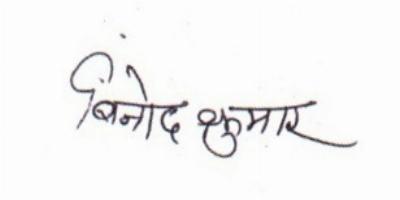 बिनोद कुमार